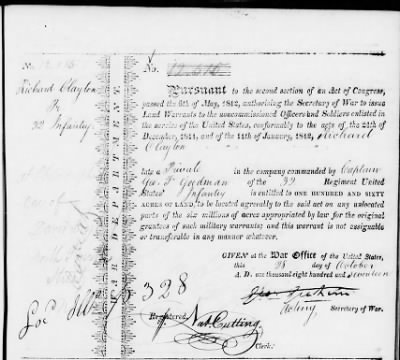 No.
Richard Clayton
Pr
32 Infantry
WAR DEPARTMENT
No.
Pursuant to the second section of an Act of Congress,
passed the 6th of May, 1812, authorising the Secretary of War to issue
Land Warrants to the uncommissioned Officers and Soldiers enlisted in
the service of the United States, conformably to the acts of the 24th of
December, 1811, and of the 11th of January, 1812, Richard
Clayton
late a Private in the company commanded by Captain
Geo. F. Goodman of the 32 Regiment United
States' Infantry is entitled to ONE HUNDRED AND SIXTY
ACRES OF LAND, to be located agreeably to the said act on any unlocated
parts of the six millions of acres appropriated by law for the original
grantees of such military warrants; and this warrant is not assignable
or transferable in any manner whatever.
GIVEN at the War Office of the United States,
this day of October
A. D. one thousand eight hundred and seventeen
Geo: Graham
Acting Secretary of War.
328
Registered, Nat. Cutting.
Clerk.